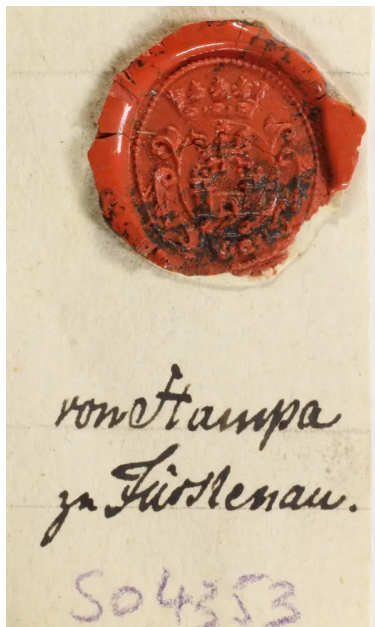 von Stampa
zu Fürstenau.
S04353